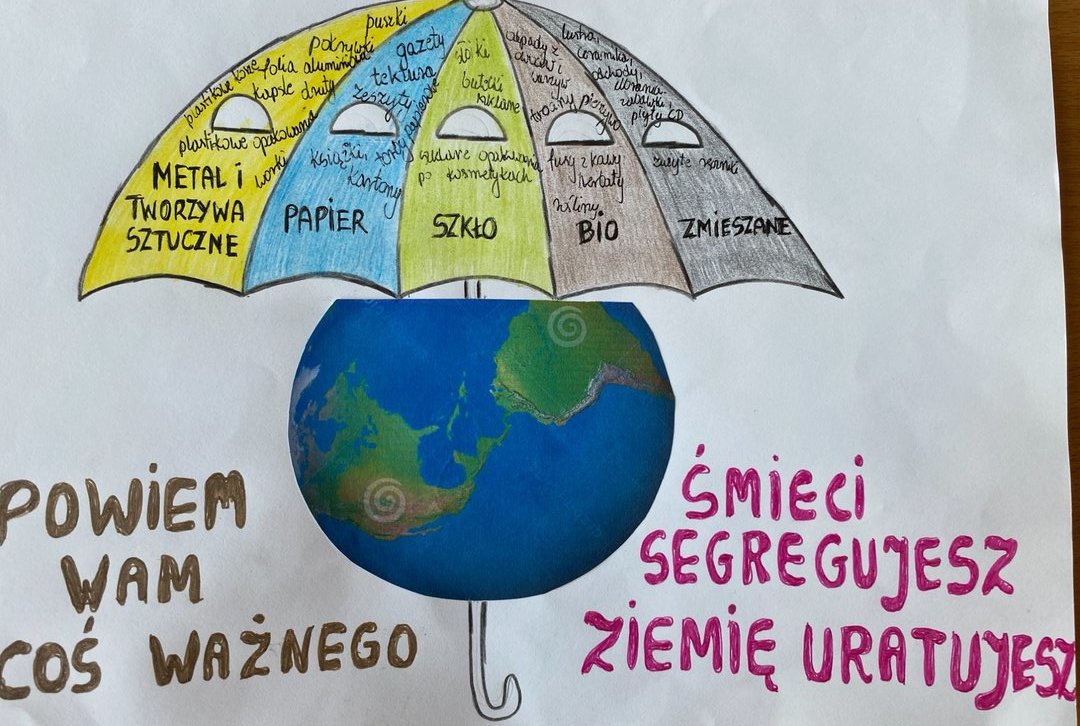 puszki
pokrywki
plastikowe
folia aluminiowa
kapsle druty
plastikowe opakowania
worki
METAL i
TWORZYWA
SZTUCZNE
gazety
tektura
zeszyty
książki
torby papierowe
kartony
PAPIER
słoiki
butelki
szklane
szklane opakowania
po kosmetykach
SZKŁO
odpady z
owoców i
warzyw
trociny pieczywo
fusy z kawy
herbaty
rośliny
BIO
lustra
ceramika,
odchody,
ubrania
zabawki
płyty CD
zużyte
ZMIESZANE
POWiEM
WAM
COŚ WAŻNEGO
ŚMiECi
SEGREGUJESZ
ZiEMiĘ URATUJESZ